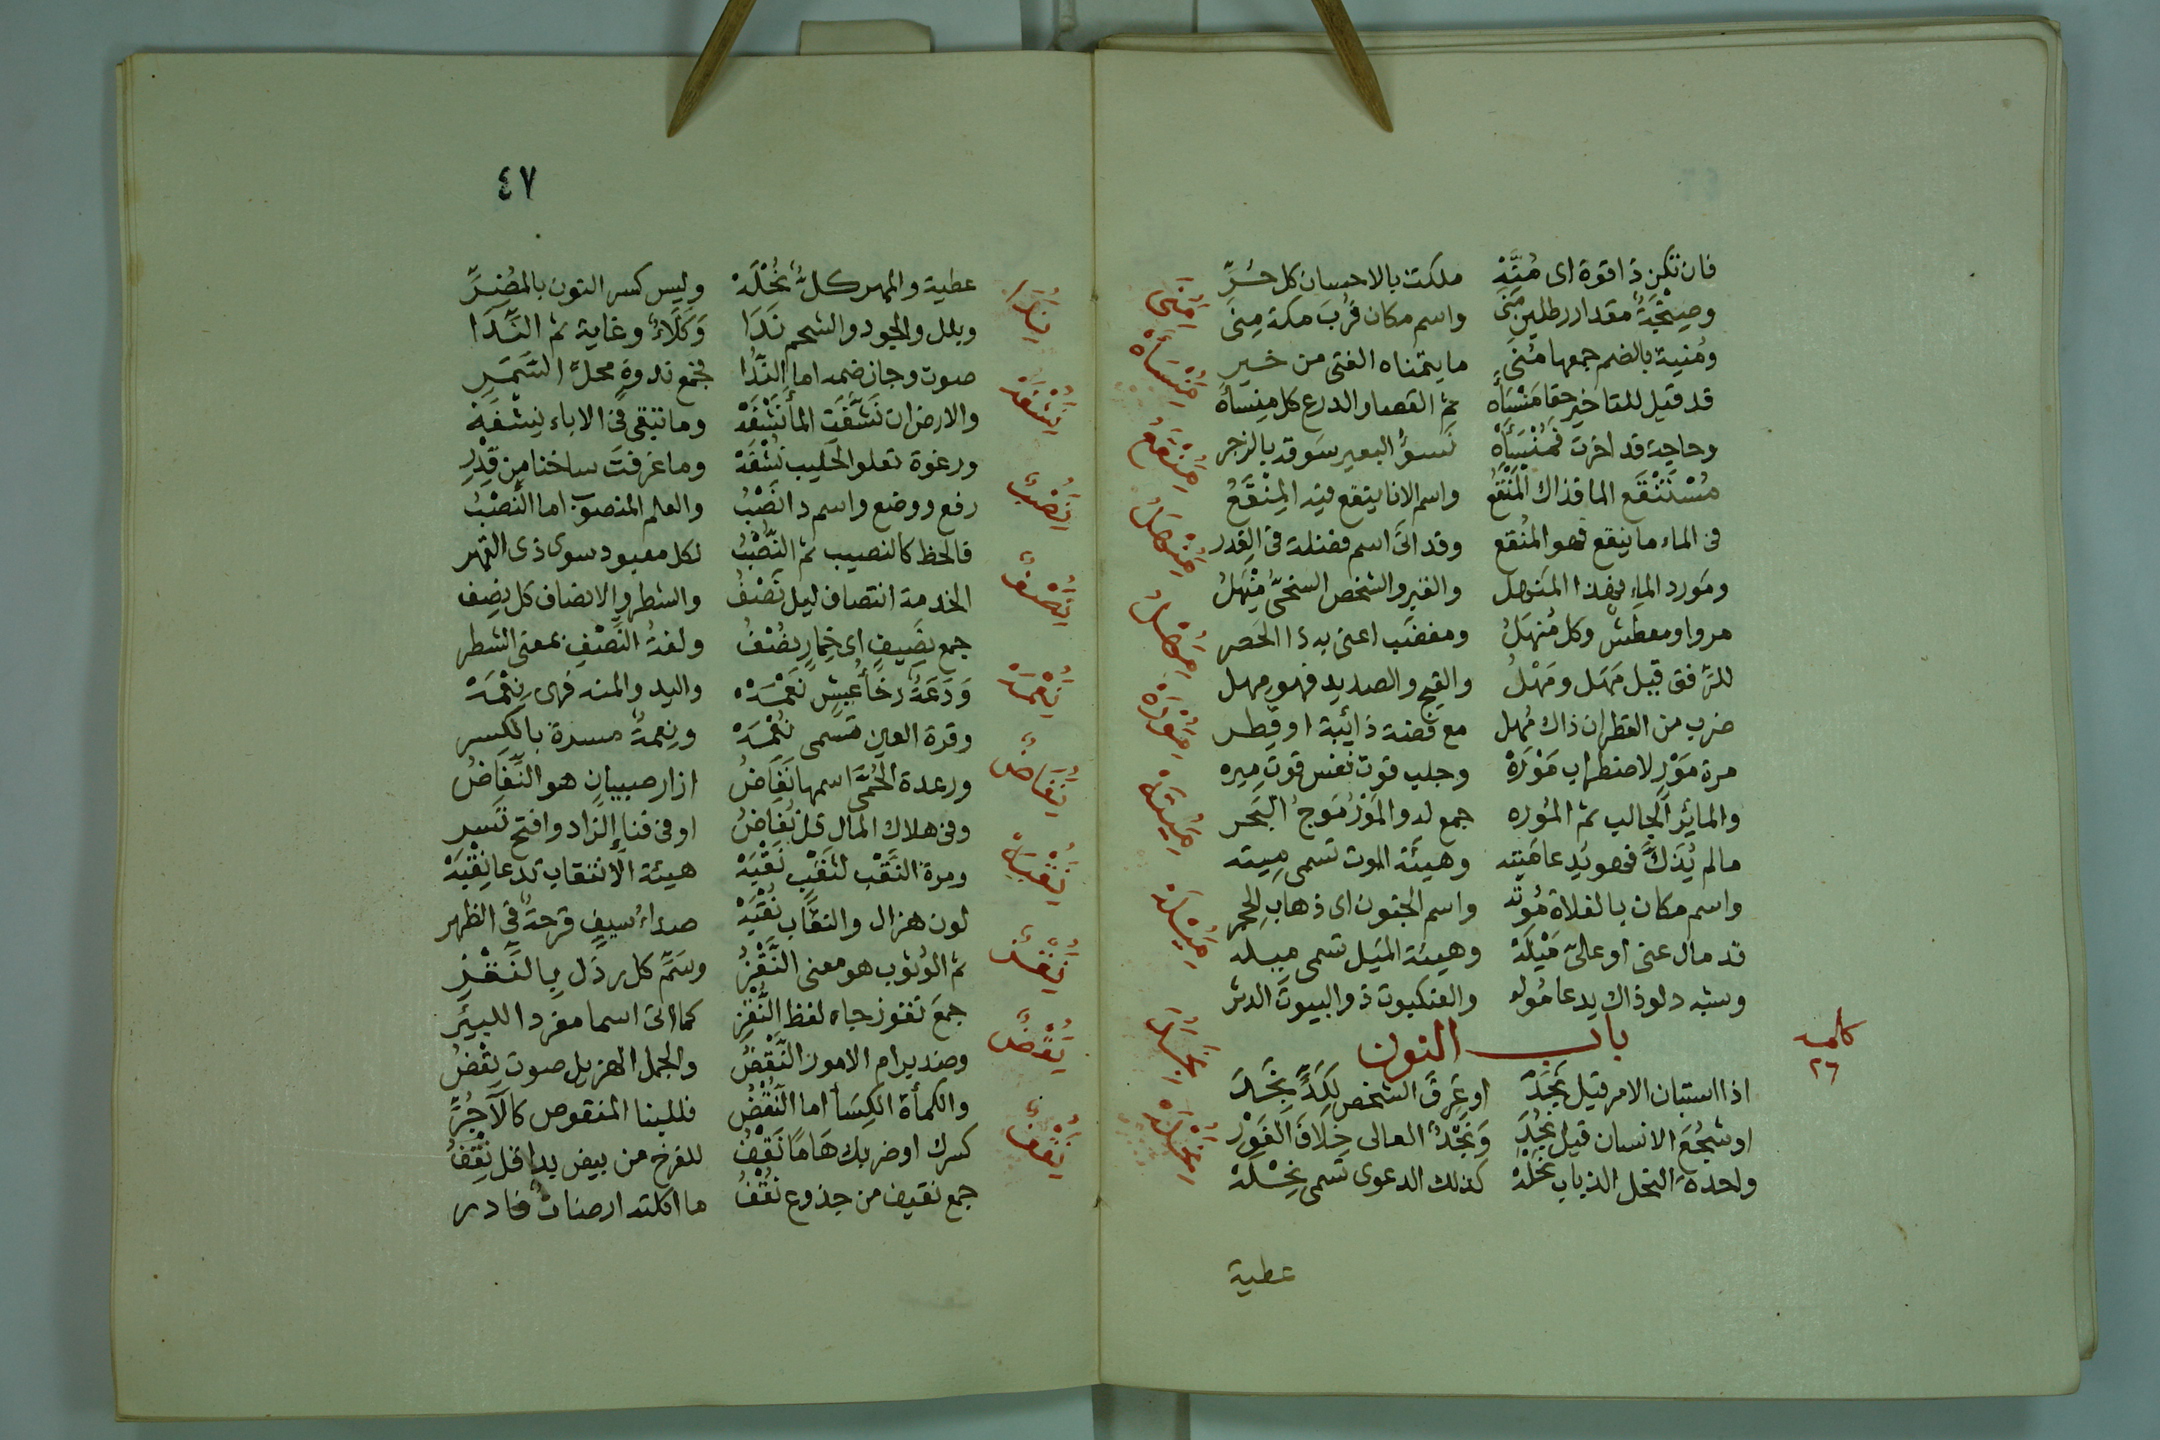 فان تكن ذا قوة اى مُنَّهْ ملكت بالاحسان كل حُرِّ
وصِنْجَةٌ مقدار رطلين مَنَى واسم مكان قُرْبَ مكة مِنَى
ومُنية بالضم جمعها مُنَى ما يتمناه الفتى من خير
قد قيل للتاخير حقا مَنْسَأَه ثم العصا والدرع كل مِنسأه
وحاجة قد اخرت فمُنْسَأَهْ نَسؤُ البعير سَوقه بالزجر
مُسْتَنْقَع الما فذاك المَنْقَعُ واسم الانا ينقع فيه المِنْقَعُ
فى الماء ما ينقع فهو المُنقع وقد اتى اسم فضلة فى القِدر
ومَورد الماء فهذا المَنهل والقبر والشخص السخىُّ مِنْهَلُ
مروا ومعطش وكل مُنهَلُ ومغضَب اعنى به ذا الحَصر
للترفق قيل مَهَل ومَهْلُ والقيح والصديد فهو مِهل
ضرب من القطران ذاك مُهل مع فضة ذائبة او قِطر
مرة مَوْرٍ لاضطراب مَوْرَةْ وجلب قوت نفس قوتٍ مِيره
والمائِر الجالب ثم المُوره جمع له والمَوْرُ مَوجُ البَحر
مالم يُذَكَّ فهو يدعا مَيته وهيئة الموت تسمى مِيته
واسم مكان بالفلاة مُوته واسم الجنون اى ذهاب الحجر
قد مال عنى او عالىّ مَيْلَهْ وهيئة المَيل تسمى ميله
وشبه دلو ذاك يدعا مُوله والعنكبوت ذو البيوت الدثر
باب النون
اذا استبان الامر قيل نَجَدَ او عَرِقَ الشخص لِكَدٍّ نَجَدَ
او شَجُعَ الانسان قيل نَجُدَ وَنَجْدٌ العالى خِلافَ الغَوْر
واحدة النحل الذباب نَحْلَهْ كذلك الدعوى تسمى نِحْلَهْ
عطية
مَنَى
مَنْسَأَه
مَنْقَعُ
مَنْهَلُ
مَهْلُ
مَوْرَه
مَيْتَه
مَيْلَه
نَجَدَ
نَحْلَه
٢٦
٤٧
عطية والمهر كلٌّ نُحْلَهْ وليس كسر النون بالمُضِرِّ
وبلل والجود والشحم نَدَا وَكَلَاءٌ وغاية ثم النِّدَا
صوت وجاز ضمه اما النُّدَا فجمع ندوةٍ محلّ السَّمَرِ
والارض ان نَشَّفَت الما نَشْفَهْ وما تبقى فى الاناء نِشْفَهْ
ورغوة تعلو الحليب نُشْفَهْ وما غرفتَ ساخنا من قِدْرِ
رفع ووضع واسم دا النَصْبُ والعلم المنصوب اما النُصْبُ
فالحظ كالنصيب ثم النُّصْبُ لكل معبود سوى ذى القهر
الخدمة انتصاف ليل نَصْفُ والشطر والانصاف كل نِصف
جمع نَصِيفٍ اى خِمارٍ نُصْفُ ولغة النَصْفِ بمعنى الشطر
وَدَعَةٌ رخاءُ عيش نَعْمَه واليد والمنه فهى نِعْمَهْ
وقرة العين تسمى نُعْمَهْ ونِعمةٌ مسرة بالكسر
ورعدة الحُمَّى اسمها نَفَاضُ ازار صبيان هو النِّفَاضُ
وفى هلاك المال قل نُفاضُ او فى فنا الزاد وافتح تَسر
ومرة النَّقْب لنَقْبٍ نَقْبَهْ هيئة الانتقاب تدعا نِقْبَهْ
لون هزال والنقاب نُقْبَهْ صداءُ سيفٍ قرحةٌ فى الظهر
ثم الوُثوب هو معنى النَّقْزُ وسَمِّ كل رذل بالنِّقْزِ
جمعَ نقوز جاء لفظ النُّقْزِ كما اتى اسما مفردا للبيئر
وضد ابرام الامور النَّقْضُ والجمل الهزيل صوت نِقْضُ
والكمأة الكِسَأ اما النُّقْضُ فللبنا المنقوص كالآجُرِّ
كسرك او ضربك هَامًا نَقْفُ للفرخ من بيض بدا قل نِقْفُ
جمع نقيف من جذوع نُقْفُ ما اكلته ارضنات فادر
نَدَا
نَشْفَه
نَصْبُ
نَصْفُ
نَعْمَه
نَفَاضُ
نَقْبَه
نَقْز
نَقْضُ
نَقْفُ